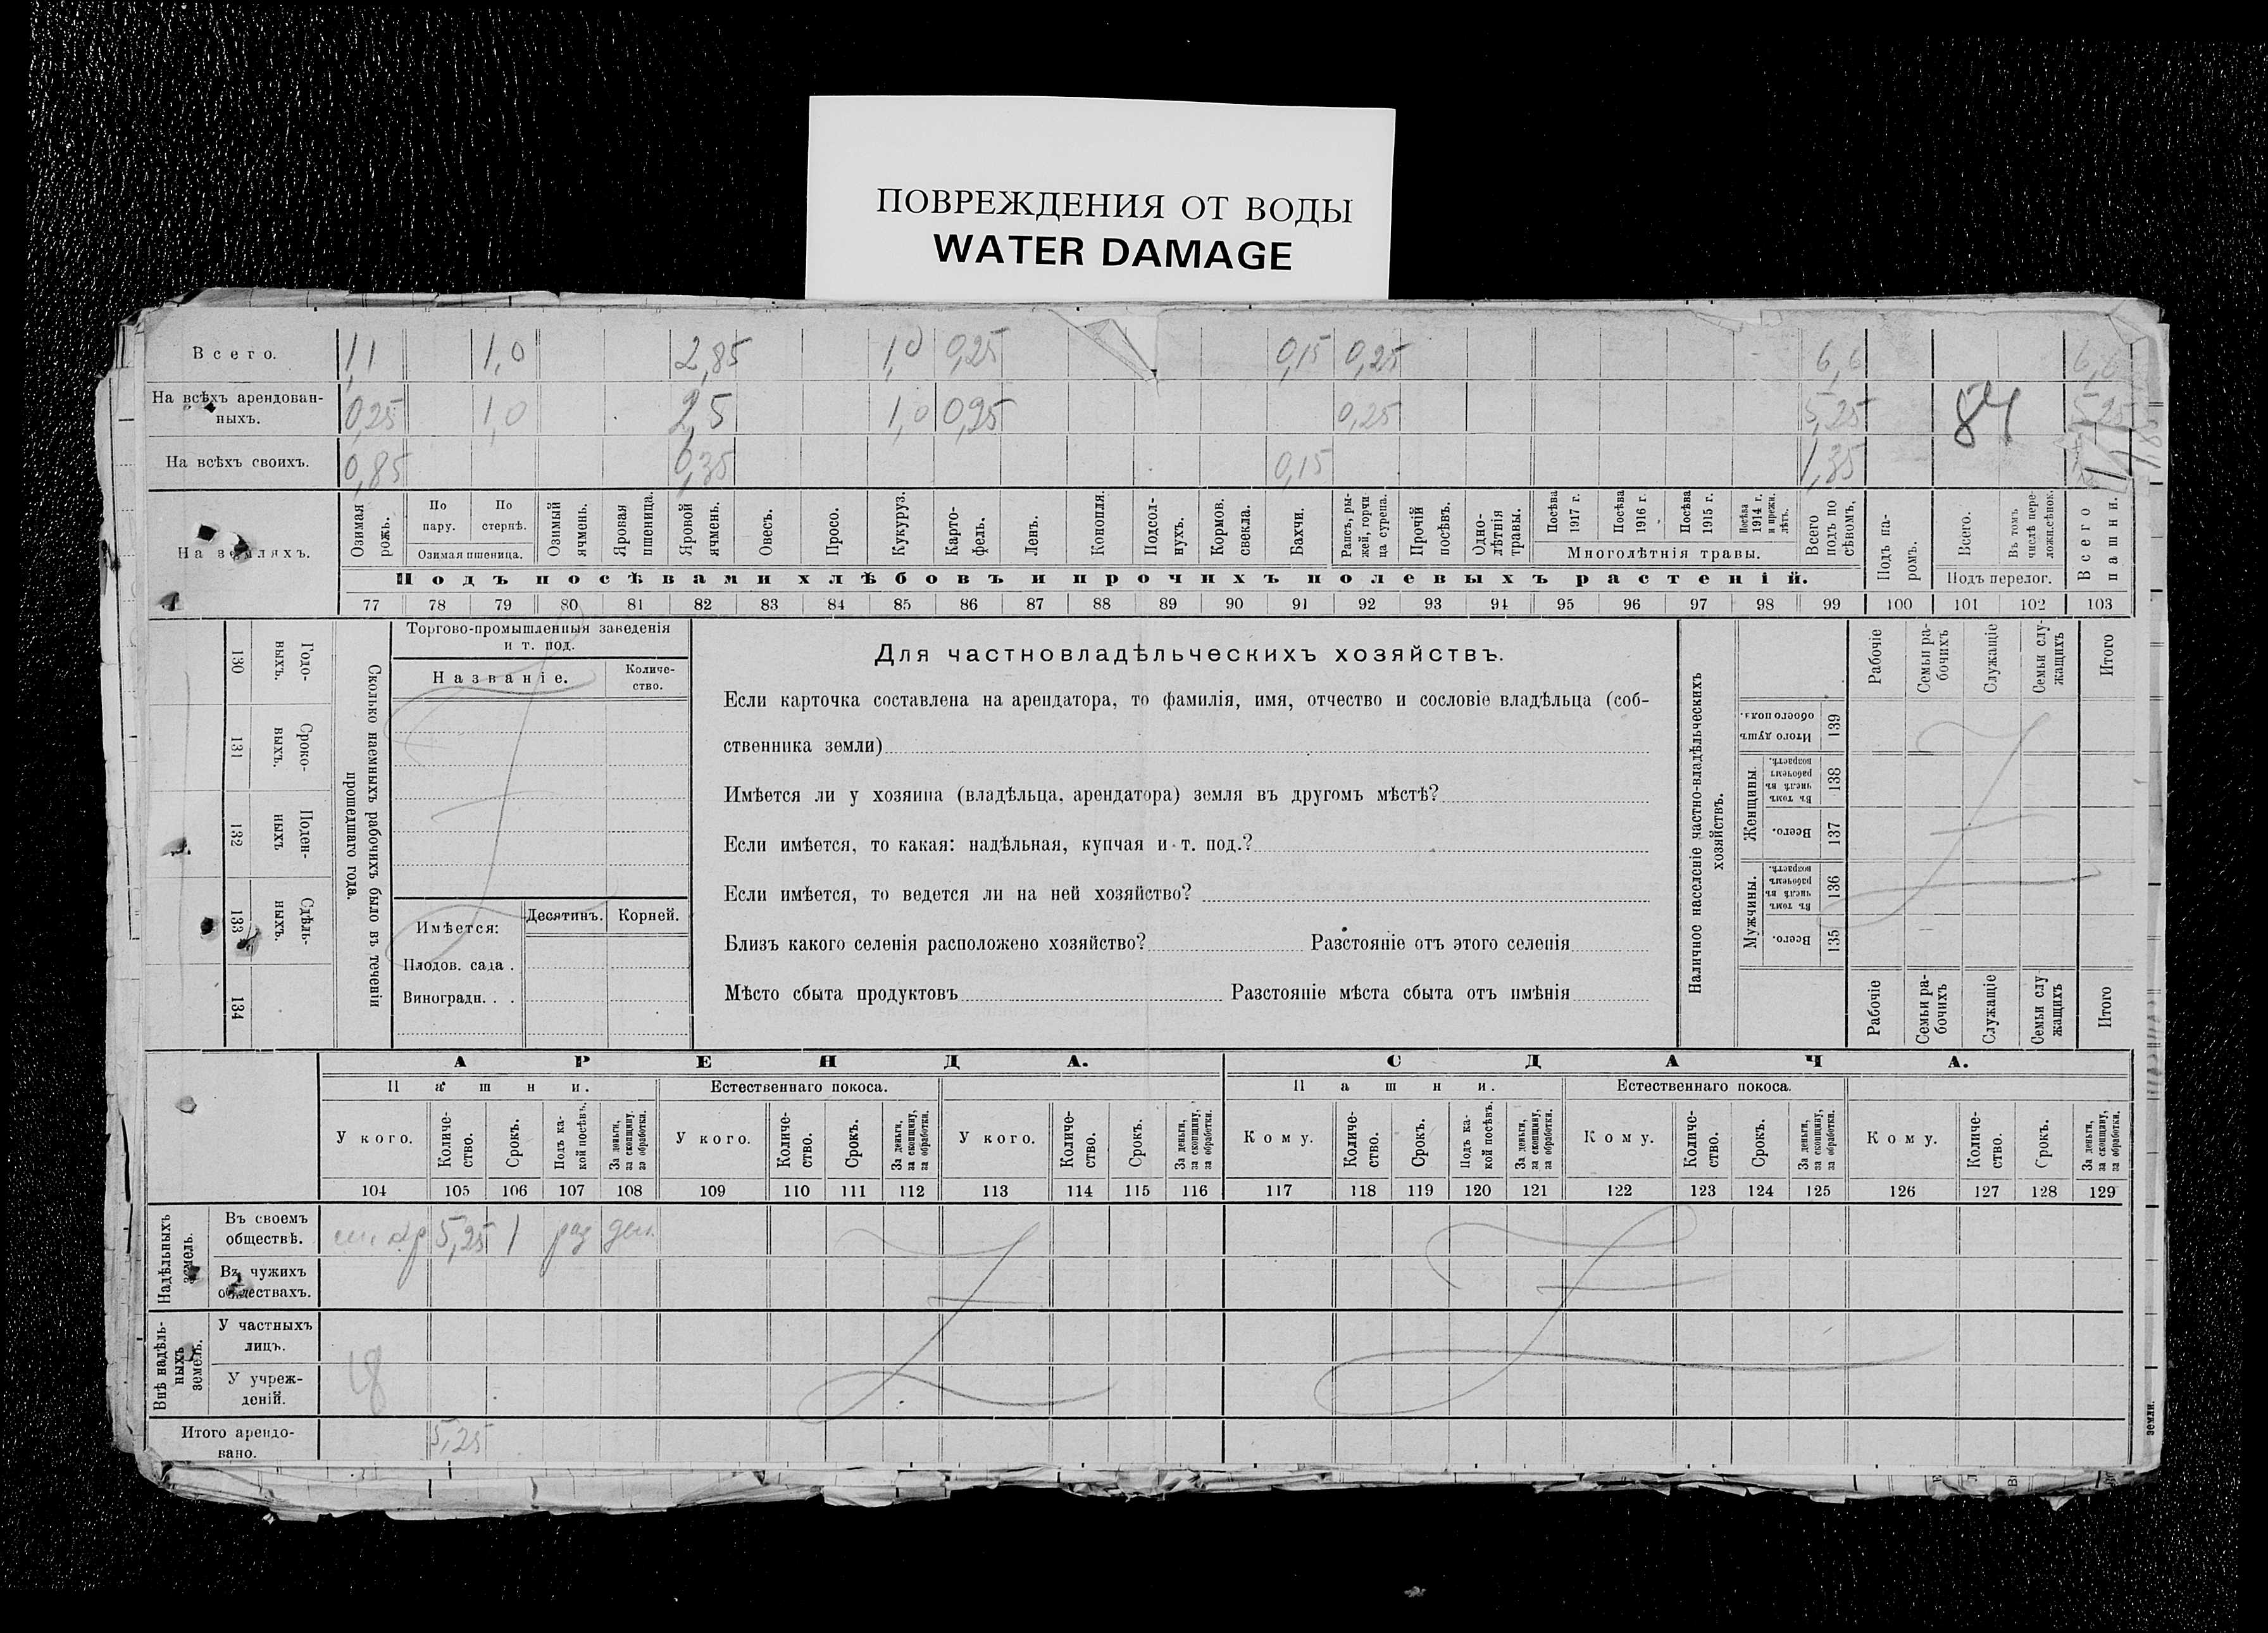 ПОВРЕЖДЕНИЯ ОТ ВОДЫ
WATER DAMAGE
Всего. 1,1 1,0 2,85 1,0 0,25 0,15 0,25 6,6 6,6
На всѣхъ арендован-
ныхъ. 0,25 1,0 2,5 1,0 0,25 0,25 5,25 84 5,25
На всѣхъ своихъ. 0,85 0,35 0,15 1,35
На земляхъ.
Озимая рожь.
По пару.
По стернѣ.
Озимая пшеница.
Озимый ячмень.
Яровая пшеница.
Яровой ячмень.
Овесъ.
Просо.
Кукуруз.
Карто-
фель.
Ленъ.
Конопля.
Подсол-
нухъ.
Кормов. свекла.
Бахчи.
Рапсъ, ры-
жей, горчи
ца сурепа.
Прочій посѣвъ.
Одно-
лѣтнія
травы.
Посѣва 1917 г.
Посѣва 1916 г.
Посѣва 1915 г.
Посѣва 1914 г. и прежн. лѣтъ.
Многолѣтнія травы.
Всего подъ по
сѣвомъ,
Подъ па-
ромъ.
Всего.
Въ томъ числѣ пере-
ложн.сѣнок.
Подъ перелог.
Всего пашни.
Подъ посѣвами хлѣбовъ и прочихъ полевыхъ растеній.
77 78 79 80 81 82 83 84 85 86 87 88 89 90 91 92 93 94 95 96 97 98 99 100 101 102 103
Сколько наемныхъ рабочихъ было въ теченіи
прошедшаго года.
Годо-
ныхъ.
130
Сроко-
ныхъ.
131
Поден-
ныхъ
132
Сдѣль-
ныхъ.
133
134
Торгово-промышленныя заведенія
и т. под.
Названіе.
Количе-
ство.
Имѣется:
Десятинъ.
Корней.
Плодов. сада .
Виноградн. . .
Для частновладѣльческихъ хозяйствъ.
Если карточка составлена на арендатора, то фамилія, имя, отчество и сословіе владѣльца (соб-
ственника земли)
Имѣется ли у хозяина (владѣльца, арендатора) земля въ другомъ мѣстѣ?
Если имѣется, то какая: надѣльная, купчая и т. под.?
Если имѣется, то ведется ли на ней хозяйство?
Близъ какого селенія расположено хозяйство? Разстояніе отъ этого селенія
Мѣсто сбыта продуктовъ Разстояніе мѣста сбыта отъ имѣнія
Наличное населеніе частно-владѣльческихъ
хозяйствъ.
Рабочіе
Семьи ра-
бочихъ
Служащіе
Семьи слу-
жащихъ
Итого
Итого душъ обоего пола.
139
Женщины.
Въ томъ числѣ въ рабочемъ возрастѣ.
138
Всего.
137
Мужчины.
Въ томъ числѣ въ рабочемъ возрастѣ.
136
Всего.
135
Рабочіе
Семьи ра-
бочихъ
Служащіе
Семьи слу
жащихъ
Итого
АРЕНДА. СДАЧА.
Пашни. Естественнаго покоса. Пашни. Естественнаго покоса.
У кого.
Количе-
ство.
Срокъ.
Подъ ка-
кой посѣвъ.
За деньги,
за скопщину,
за обработки.
У кого.
Количе-
ство.
Срокъ.
За деньги,
за скопщину,
за обработки.
У кого.
Количе-
ство.
Срокъ.
За деньги,
за скопщину,
за обработки.
Кому.
Количе-
ство.
Срокъ.
Подъ ка-
кой посѣвъ.
За деньги,
за скопщину,
за обработки.
Кому.
Количе-
ство.
Срокъ.
За деньги,
за скопщину,
за обработки.
Кому.
Количе-
ство.
Срокъ.
За деньги,
за скопщину,
за обработки.
104 105 106 107 108 109 110 111 112 113 114 115 116 117 118 119 120 121 122 123 124 125 126 127 128 129
Надѣльныхъ
земель.
Въ своемъ
обществѣ. 5,25 1 раз ден.
Въ чужихъ
обществахъ.
Внѣ надѣль-
ныхъ
земель.
У частныхъ
лицъ.
18
У учреж-
деній.
Итого арендо-
вано. 5,25
земли.